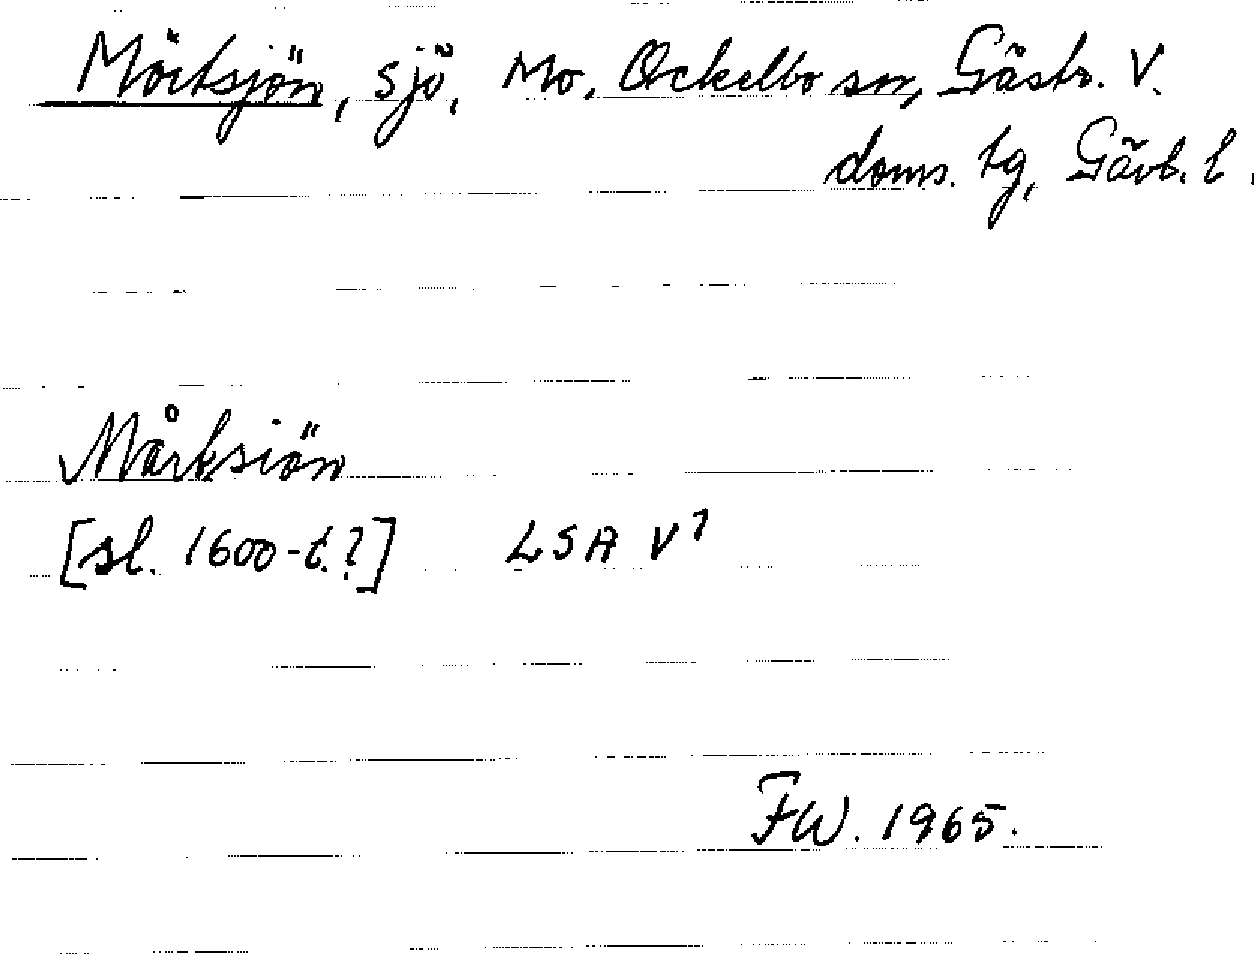 Mörtsjön, sjö, Mo, Ockelbo sn, Gästr. V.
doms. tg, Gävl. l.
Mårksiön
[sl. 1600-t.?] LSA V7
FW. 1965.